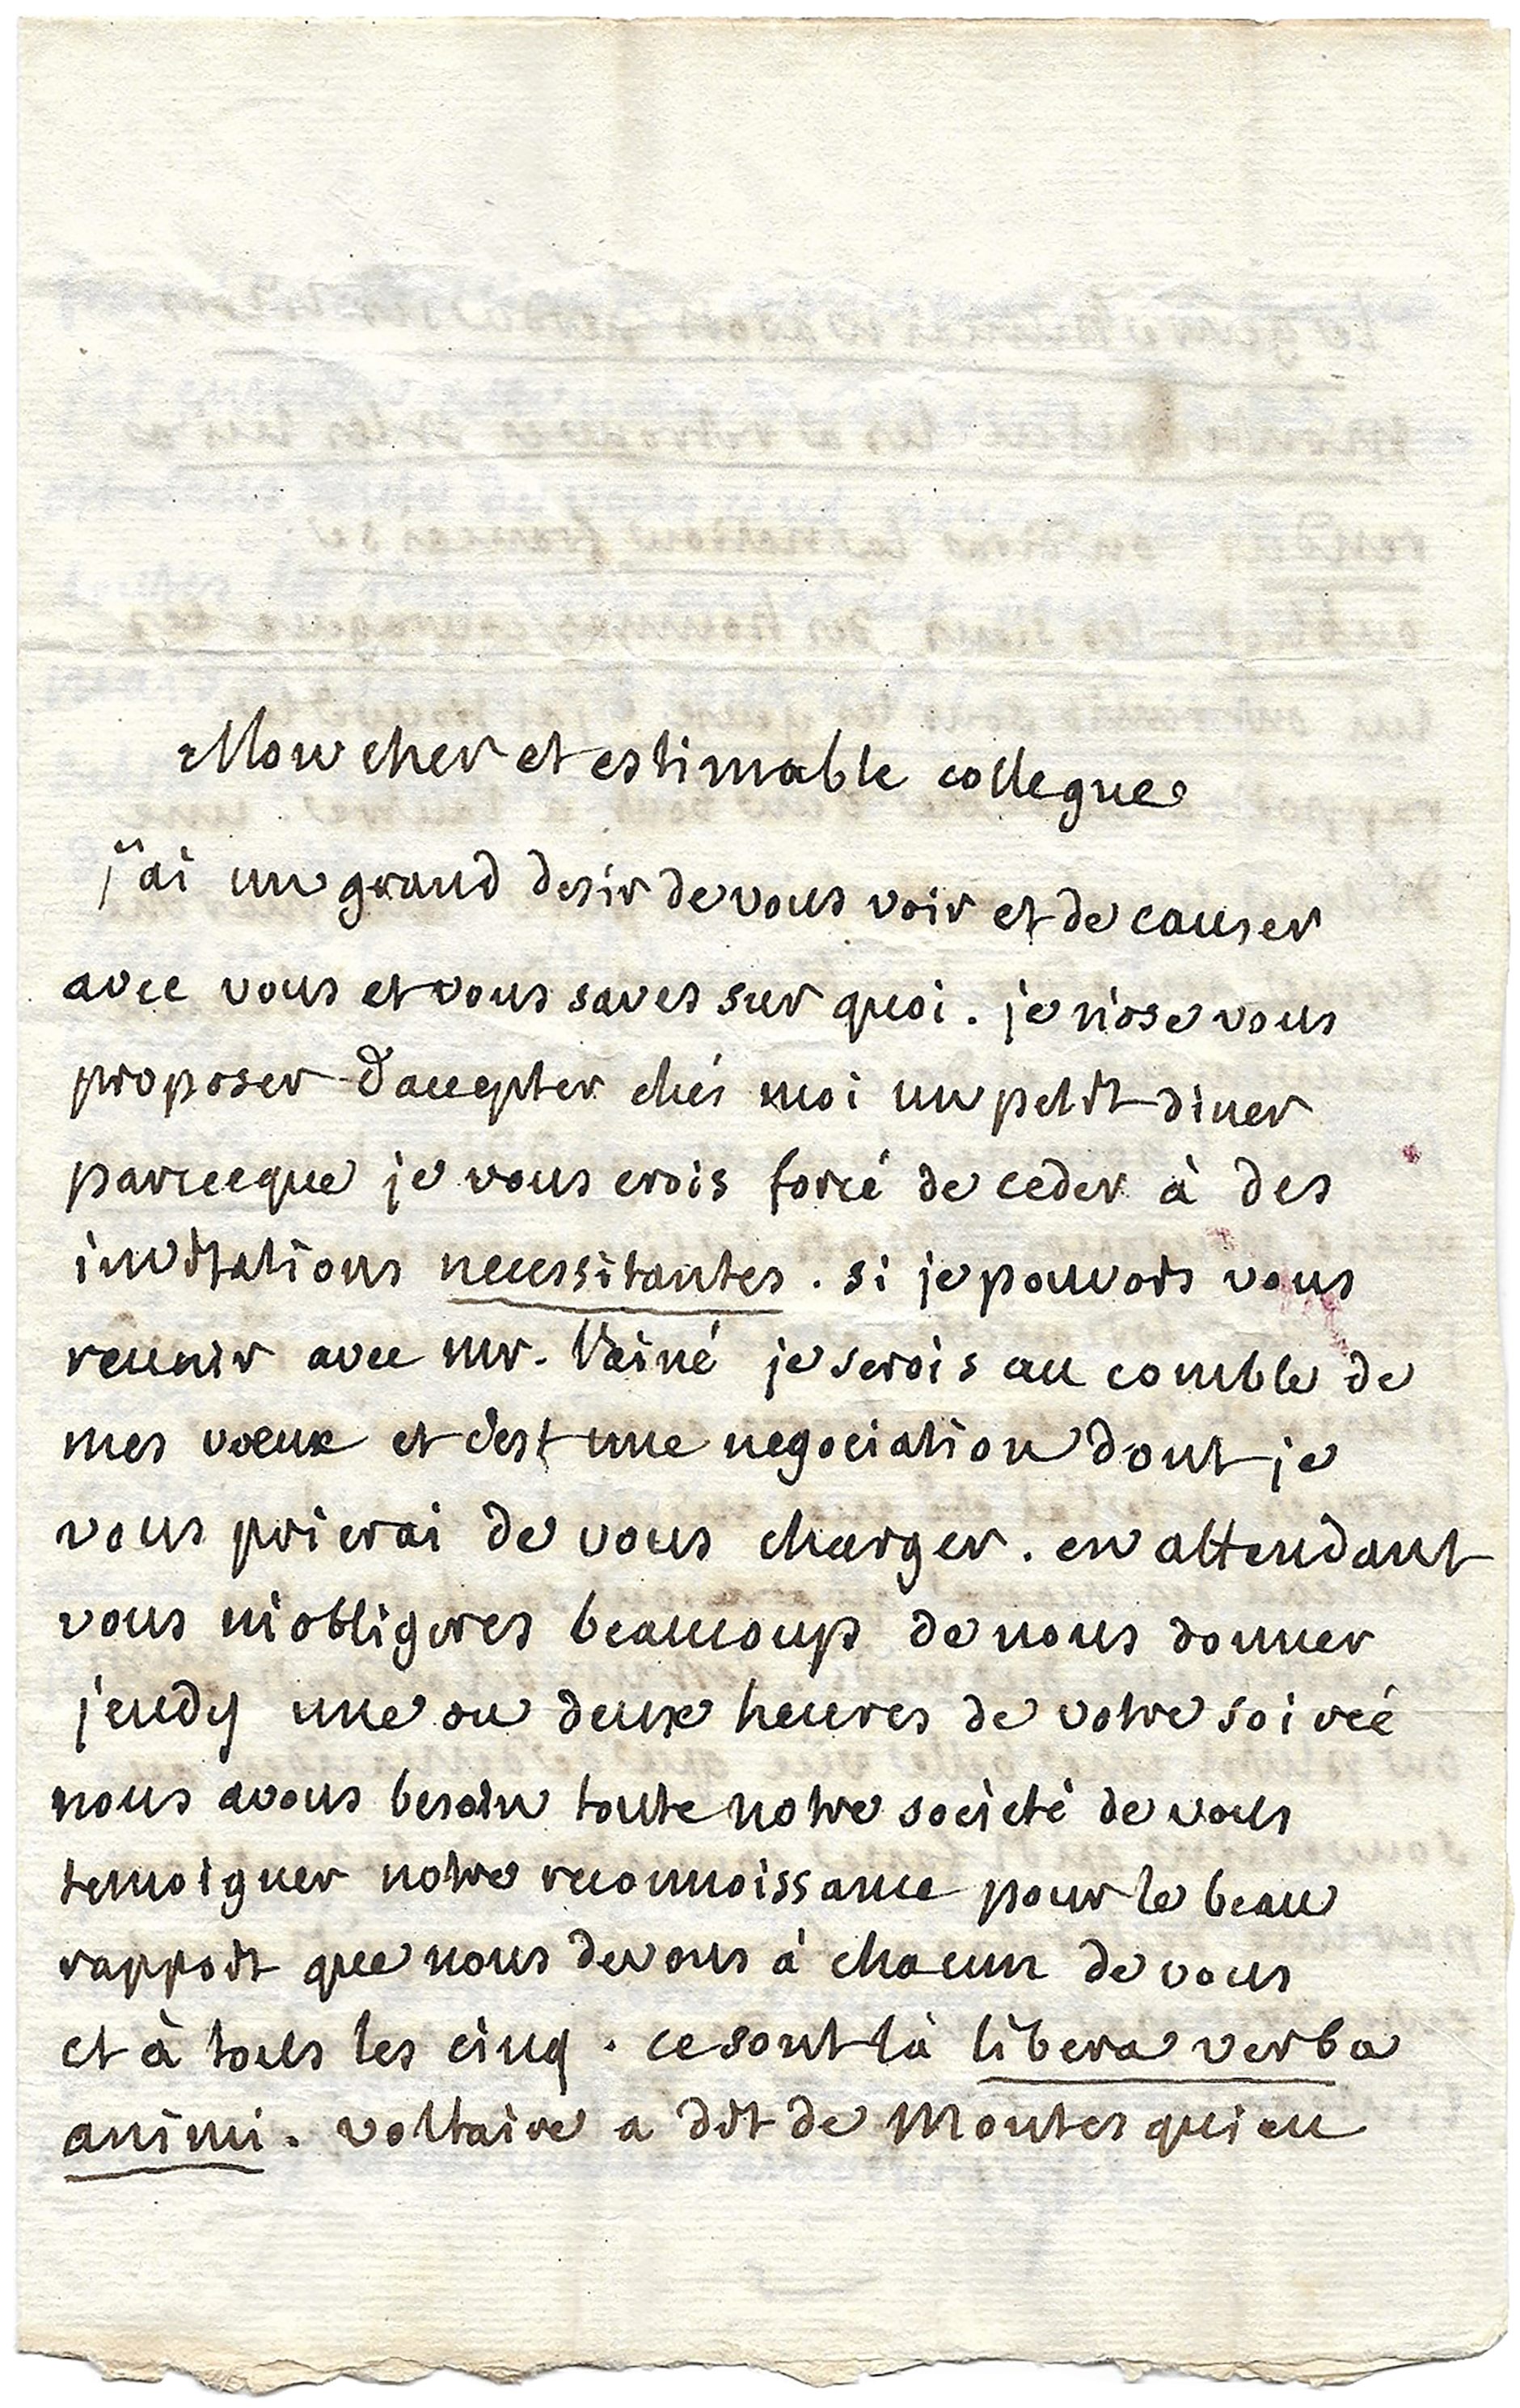 Mon cher et estimable collegue
j'ai un grand desir de vous voir et de causer
avec vous et vous saves sur quoi. je n'ose vous
proposer d'accepter chés moi un petit diner
parceque je vous crois forcé de ceder à des
invitations necessitantes. si je pouvois vous
reunir avec mr. Lainé je serois au comble de
mes voeux et c'est une negociation dont je
vous prierai de vous charger. en attendant
vous m'obligeres beaucoup de nous donner
jeudy une ou deux heures de votre soireé
nous avons besoin toute notre societé de vous
temoigner notre reconnoissance pour le beau
rapport que nous devons à chacun de vous
et à tous les cinq. ce sont là libera verba
animi. voltaire a dit de Montesquieu